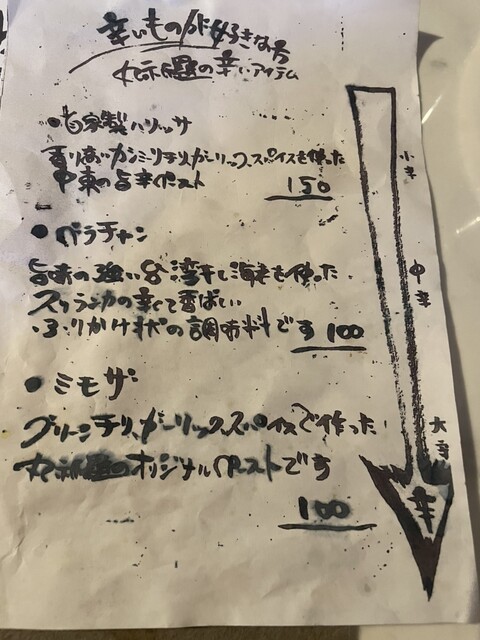 辛いものが好きな方
問題の辛いアイテム
●自家製ハリッサ
香り高いカシミリチリ、ガーリック、スパイスを使った
中東の旨辛ペースト
150
●バラチャン
旨味の強い台湾干し海老を使った
スリランカの辛くて香ばしい
ふりかけ状の調味料です 100
●ミモザ
グリーンチリ、ガーリック、スパイスで作った
問題のオリジナルペーストです
100
小辛
中辛
大辛
辛